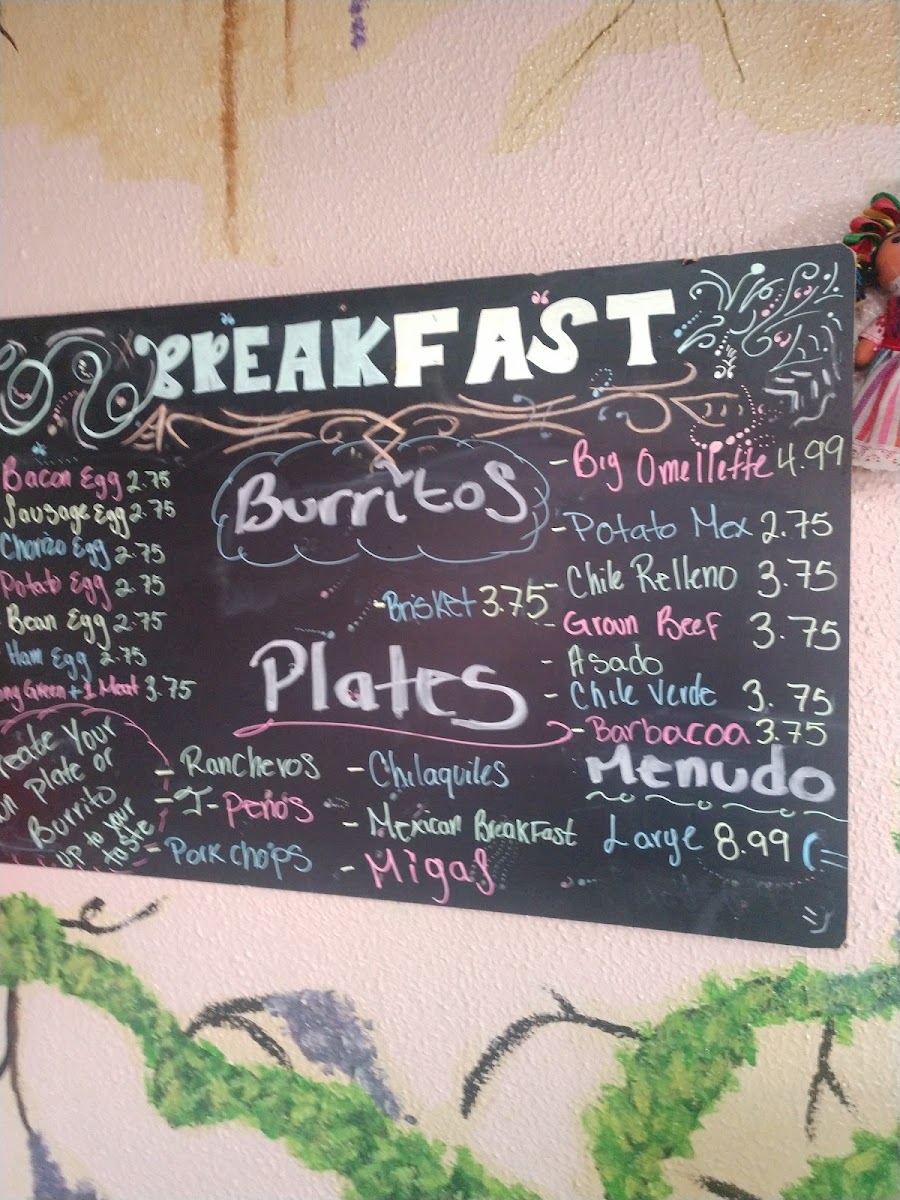 BREAKFAST
Bacon Egg 2.75
Sausage Egg 2.75
Chorizo Egg 2.75
Potato Egg 2.75
Bean Egg 2.75
Ham Egg 2.75
Green + 1 Meat 3.75
Your
plate or
Burrito
up to your
taste
Burritos
- Brisket 3.75
- Big Omellette 4.99
- Potato Mex 2.75
- Chile Relleno 3.75
- Groun Beef 3.75
- Asado
- Chile Verde 3.75
- Barbacoa 3.75
Plates
- Rancheros
- J-Peños
- Pork chops
- Chilaquiles
- Mexican BreakFast
- Migas
Menudo
Large 8.99